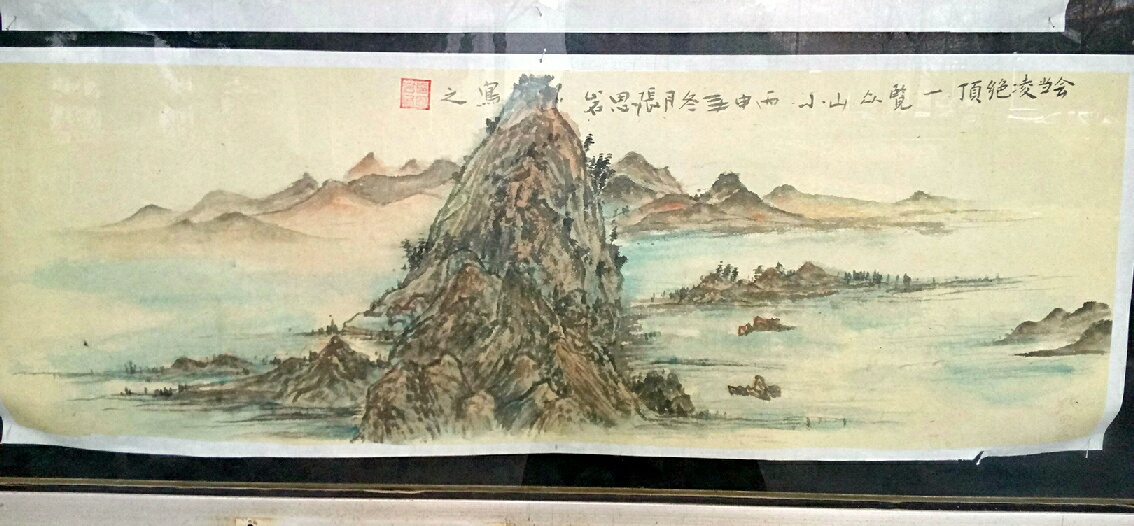 会当凌绝頂一覽众山小丙申年冬月張思岩寫之